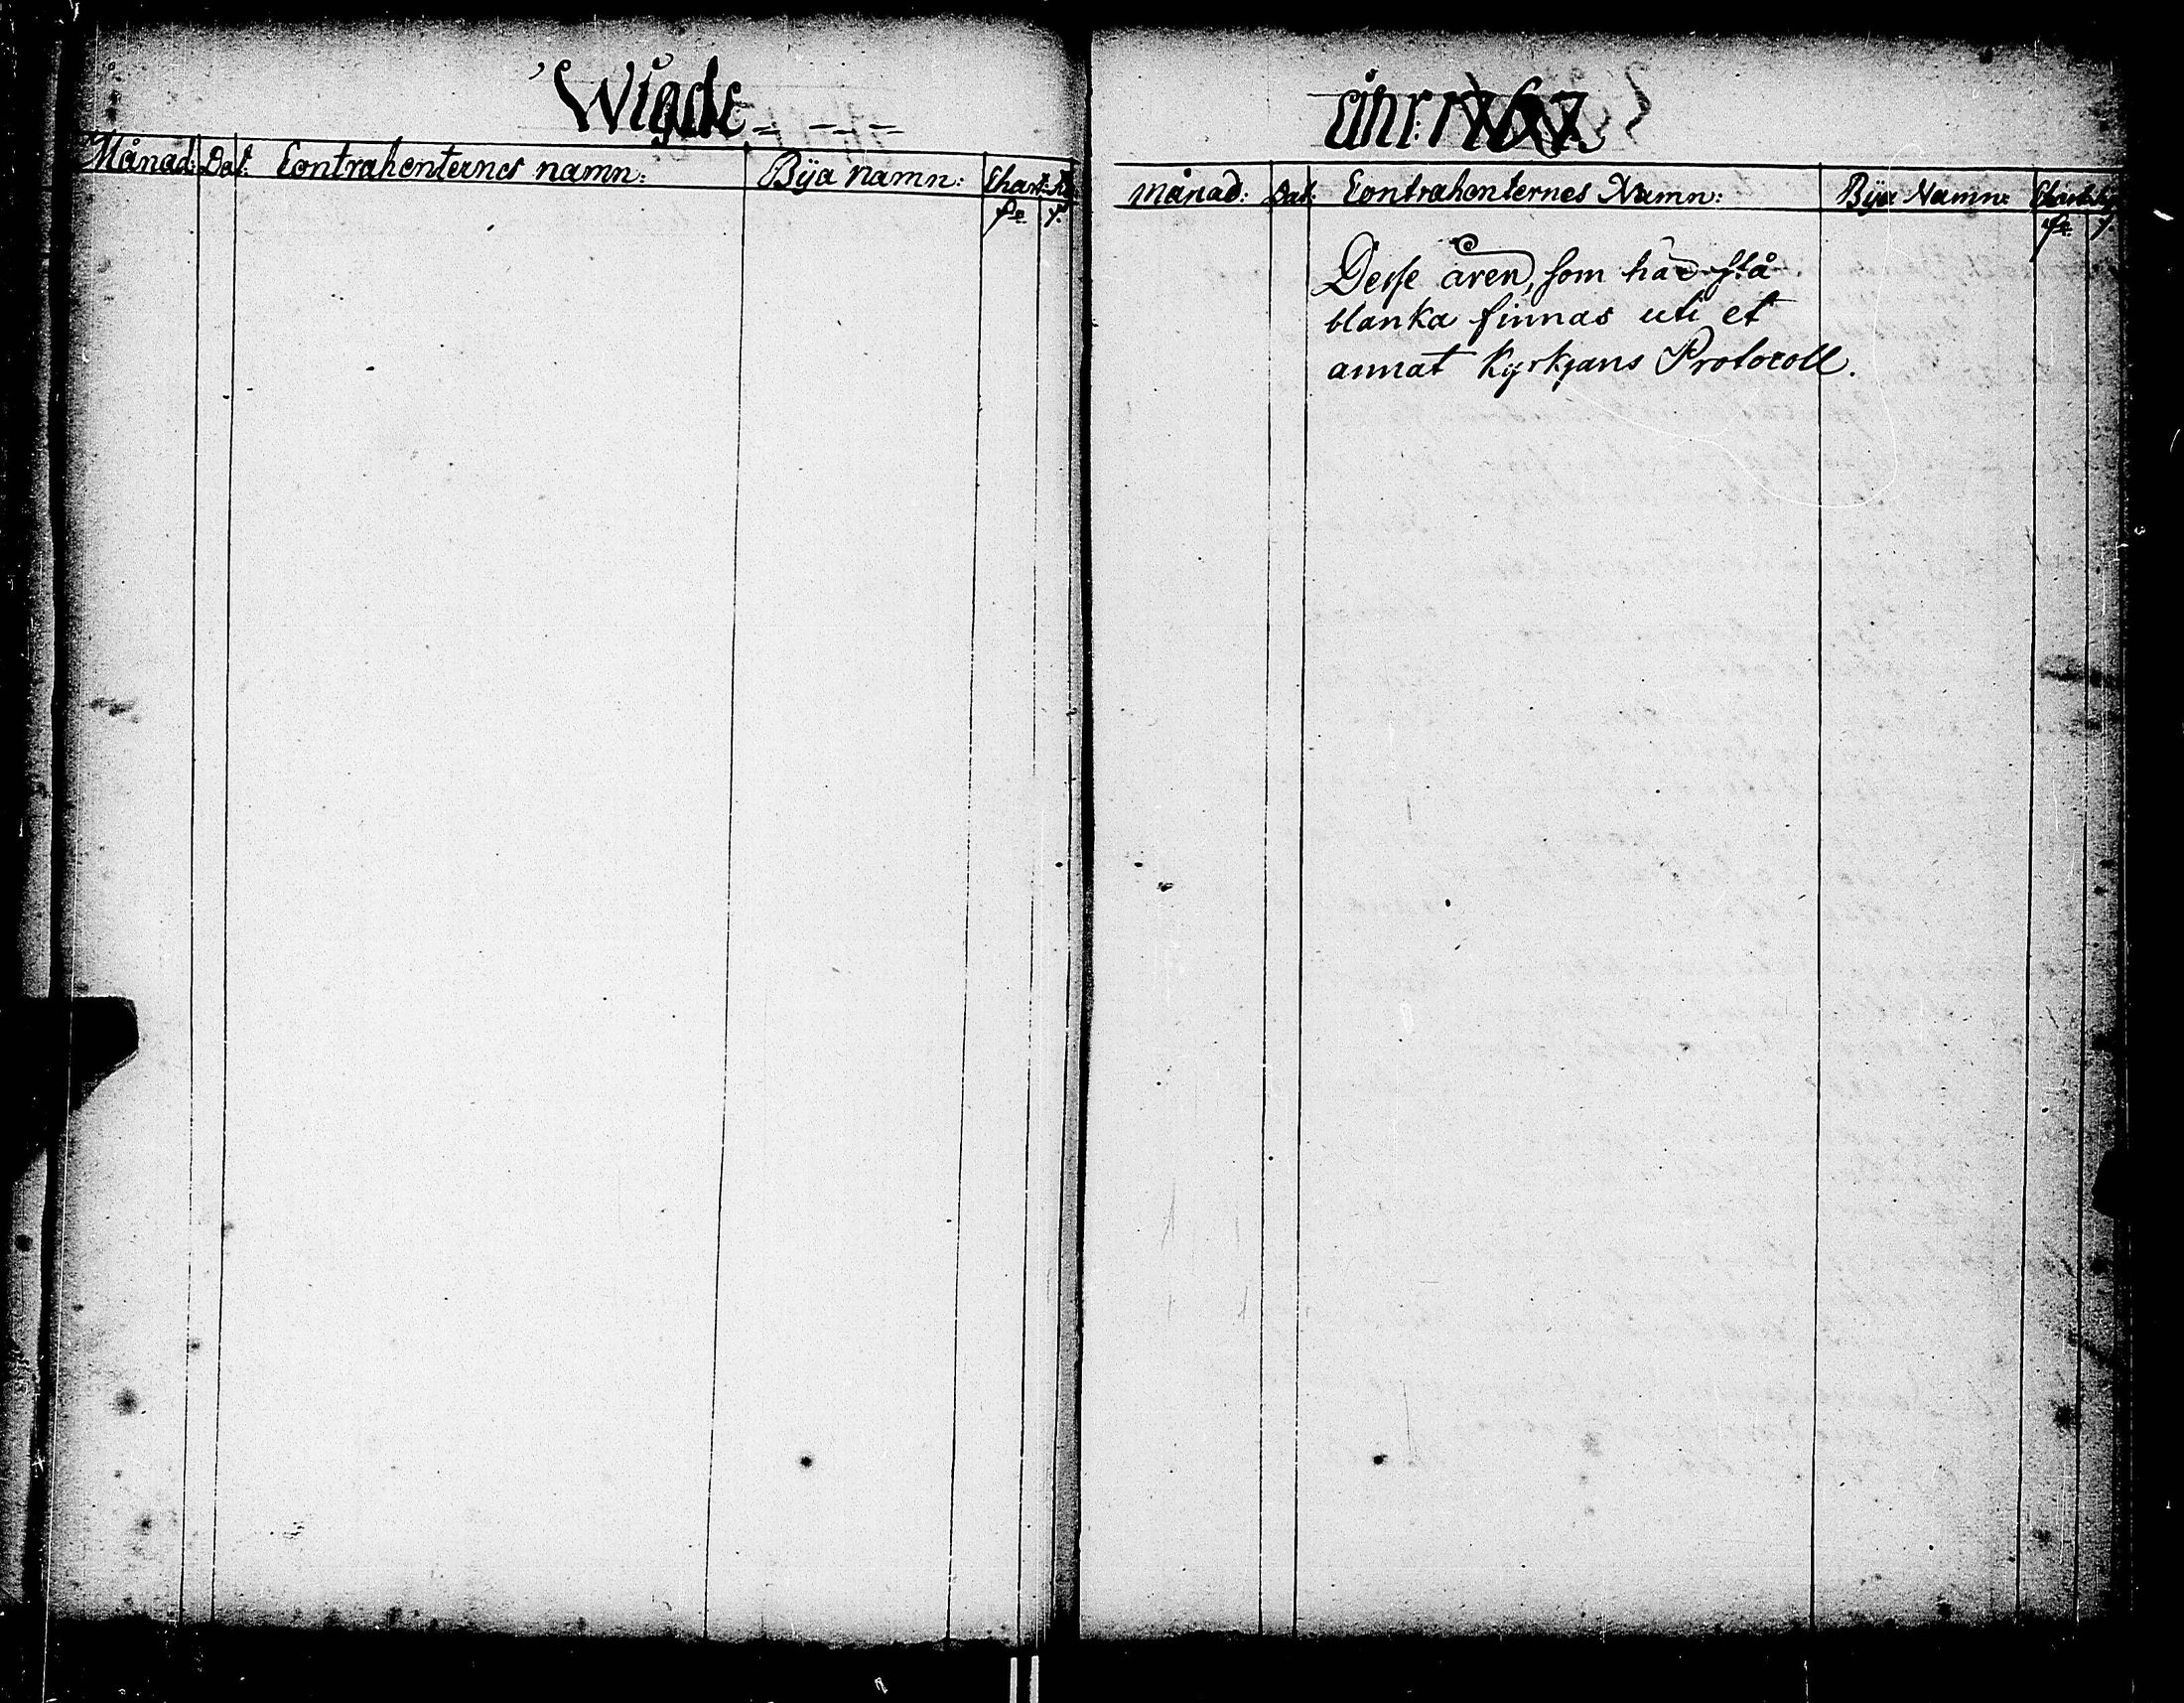 Wigde
Månad: Dat: Contrahenternes namn: Bÿa namn: Chart:
åhr: 1767.
Månad: Dat: Contrahenternes Namn: Bÿa Namn:
Desse åren, som här stå
blanka finnas uti et
annat Kyrkjans Protocoll.